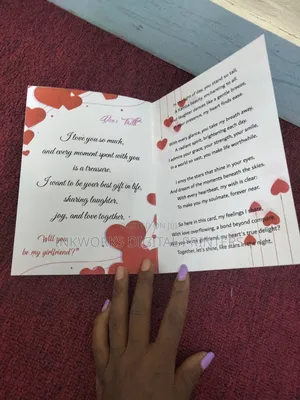 I love you so much,
and every moment spent with you
is a treasure.
I want to be your best gift in life,
sharing laughter,
joy, and love together.
"Will you
be my girlfriend?"
of day, you stand so tall,
beauty, enchanting to all.
laughter dances like a gentle breeze,
presence, my heart finds ease.
With every glance, you take my breath away,
A radiant spirit, brightening each day.
I admire your grace, your strength, your smile,
In a world so vast, you make life worthwhile.
I envy the stars that shine in your eyes,
And dream of the moments beneath the skies.
With every heartbeat, my wish is clear:
To make you my soulmate, forever near.
So here in this card, my feelings I
With love overflowing, a bond beyond compare.
girlfriend, my heart's true delight?
Together, let's shine, like stars in the night.
INKWORKS DIGITAL PRINTERS